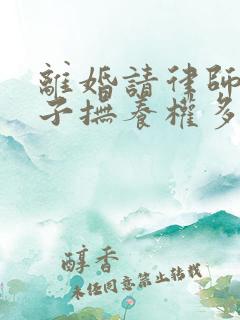 離婚請律師
子撫養權多
醇香
未經同意禁止轉載